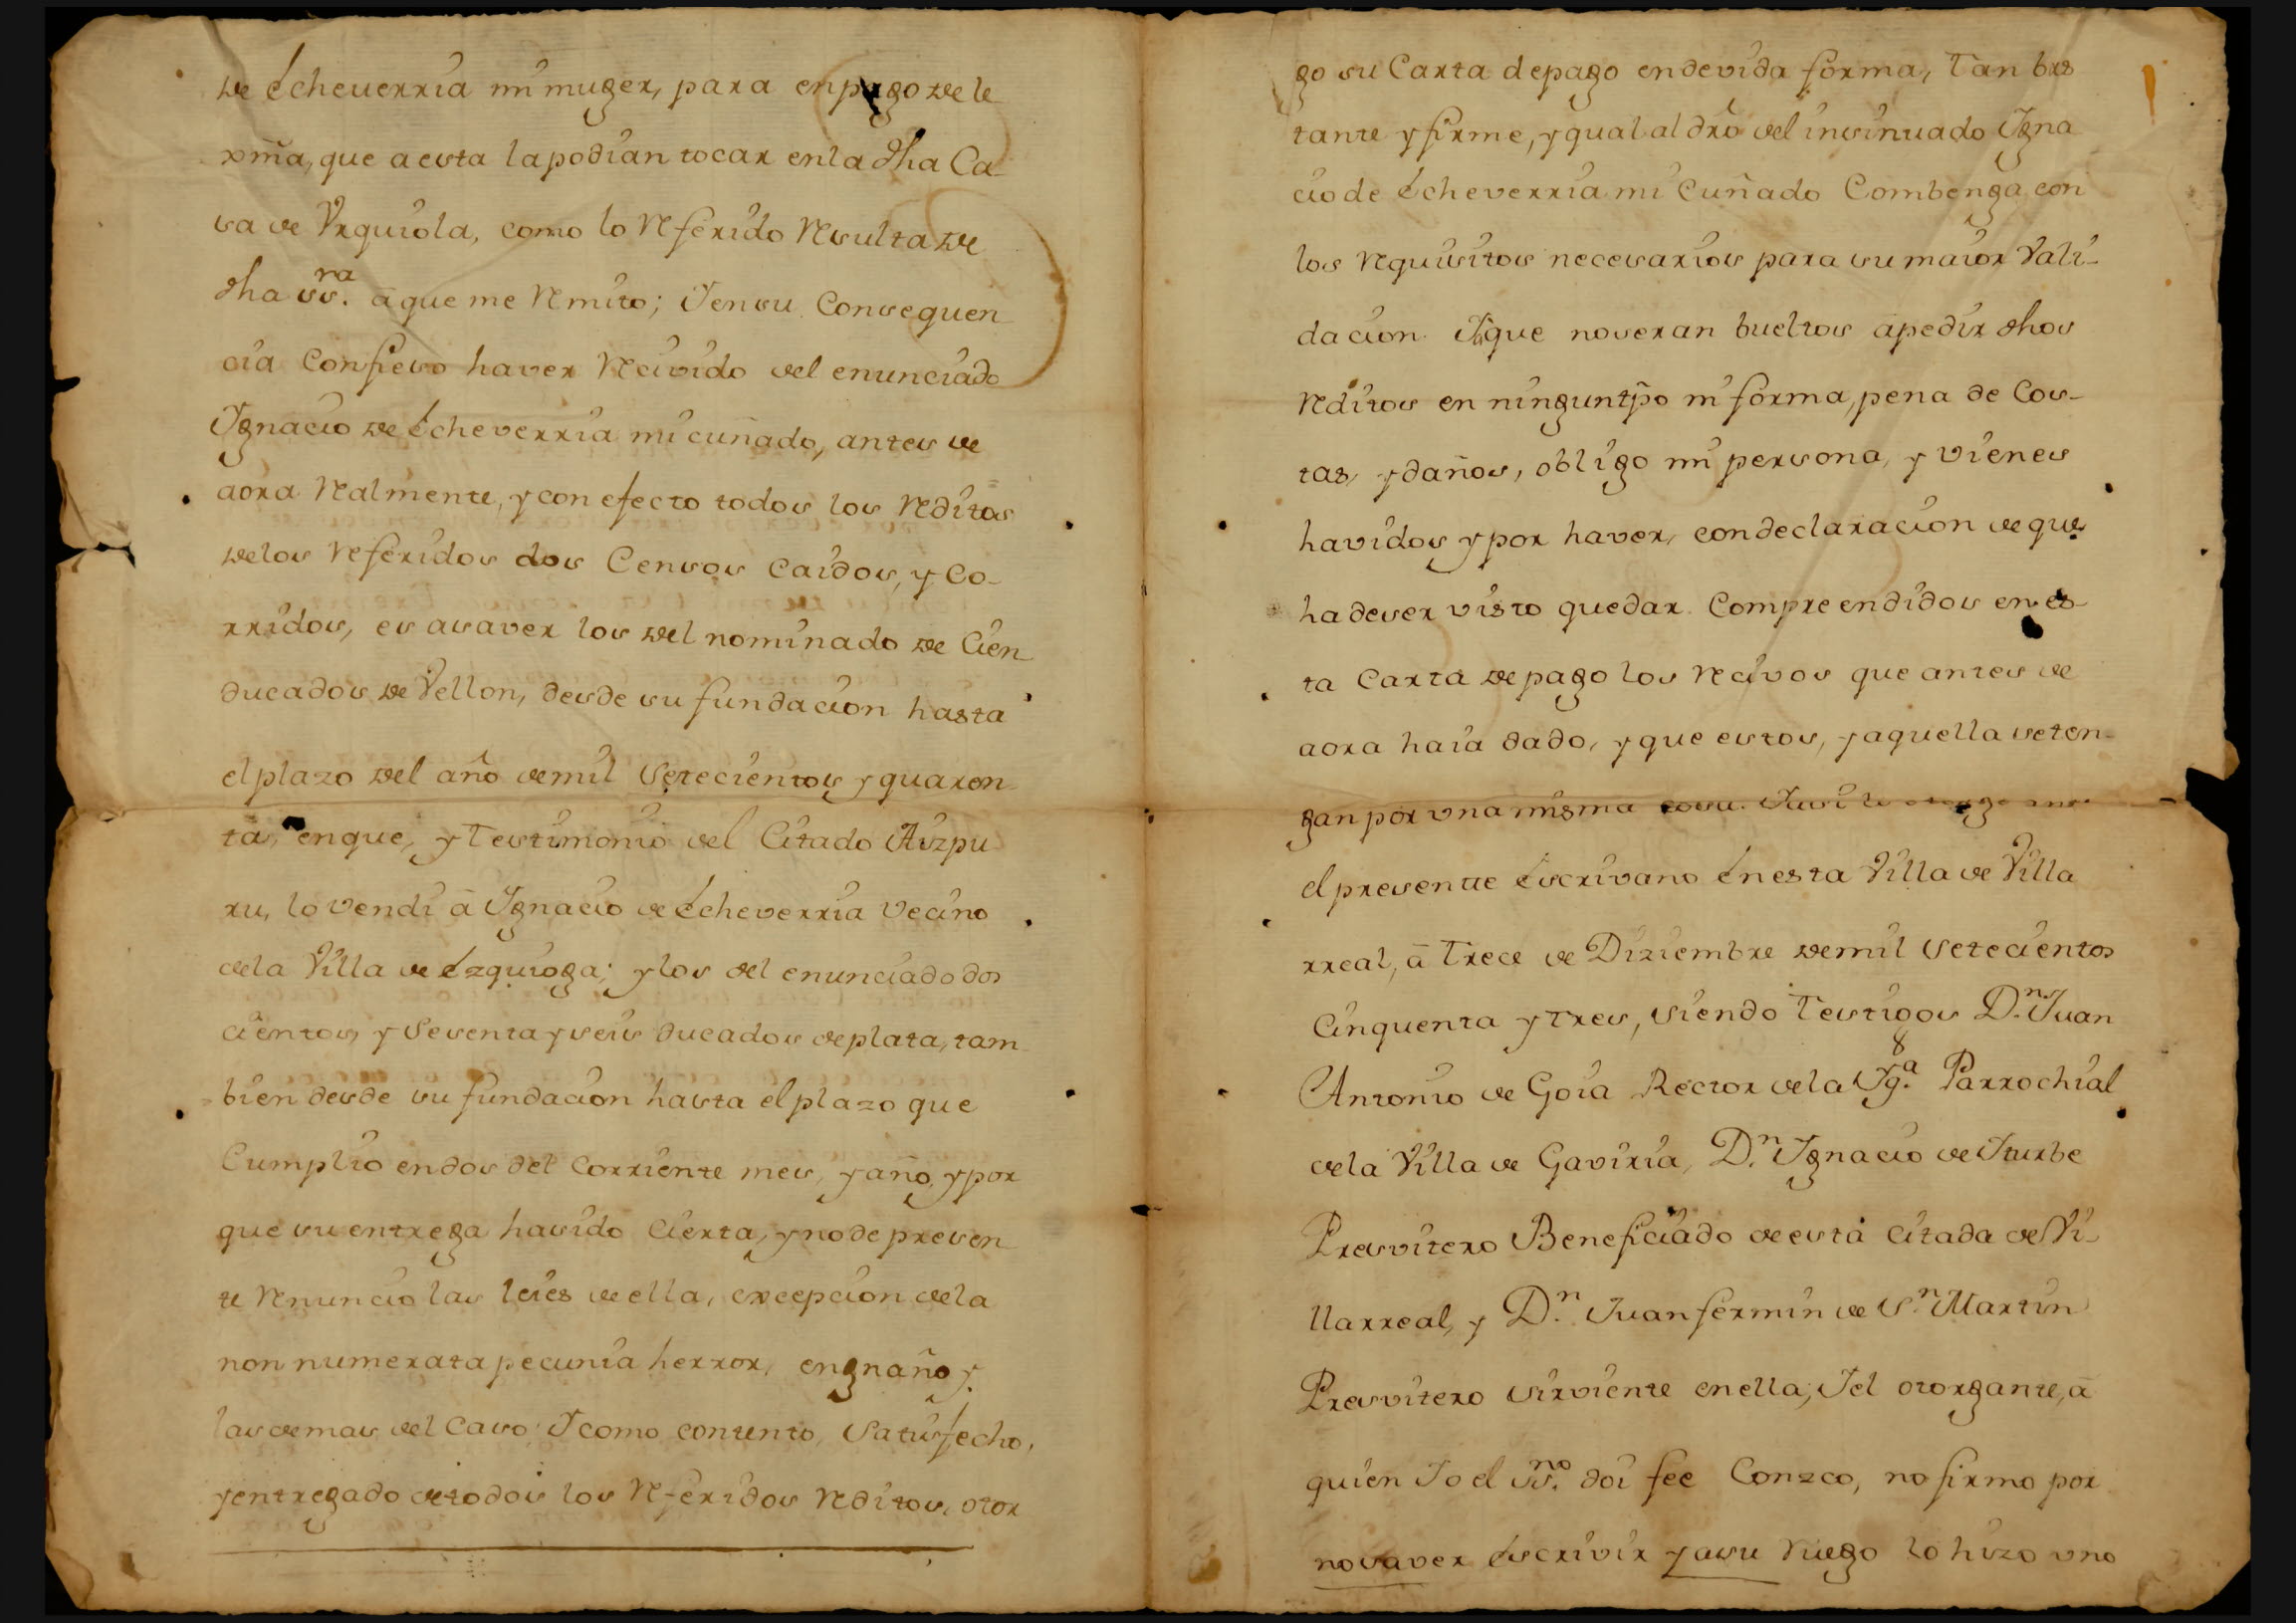 de Echeuerria mi muger, para en pago de le
xma, que a esta la podian tocar en la dha Ca
sa de Vrquiola, como lo Referido Resulta de
dha ss.ra â que me Remito; I en su Consequen
cia Confieso haver Recivido del enunciado
Ignacio de Echeverria mi cuñado, antes de
aora Realmente, y con efecto todos los Reditos
de los Referidos dos Censos Caidos, y Co-
rridos, es a saver los del nominado de Cien
ducados de Vellon, desde su fundacion hasta
el plazo del año de mil Setecientos y quaren
ta, en que, y Testimonio del Citado Aizpu
ru, lo vendi â Ignacio de Echeverria Vecino
de la Villa de Ezquioga; y los del enunciado dos
cientos, y Sesenta y seis ducados de plata, tam
bien desde su fundacion hasta el plazo que
Cumplio en dos del Corriente mes, y año, y por
que su entrega ha sido Cierta, y no de presen
te Renuncio las leies de ella, excepcion de la
non numerata pecunia herror, engnaño y
las demas del Caso I como contento, Satisfecho,
y entregado de todos los Referidos Reditos, otor
go su Carta de pago en devida forma, Tan bas
tante y firme, y qual al dro del insinuado Igna
cio de Echeverria mi Cuñado Combenga con
los Requisitos necesarios para su maior Vali-
dacion I que no seran bueltos apedir dhos
Reditos en ningun tpo ni forma, pena de Cos-
tas, y daños, obligo mi persona, y Vienes
havidos y por haver, con declaracion de que
ha de ser visto quedar Compreendidos en es-
ta Carta de pago los Recivos que antes de
aora haia dado, y que estos, y aquella se ten-
gan por vna misma cosa. I asi lo otorgo ante
el presente Escrivano En esta Villa de Villa
rreal, â Trece de Diziembre de mil Setecientos
Cinquenta y tres, Siendo Testigos D.n Juan
Antonio de Goia Rector de la Ig.a Parrochial
de la Villa de Gaviria, D.n Ignacio de Iturbe
Presvitero Beneficiado de esta Citada de Vi-
llarreal, y D.n Juan fermin de S.n Martin
Presvitero Sirviente en ella; I el otorgante, â
quien Io el ss.no doi fee Conozco, no firmo por
no saver Escrivir y a su Ruego lo hizo vno